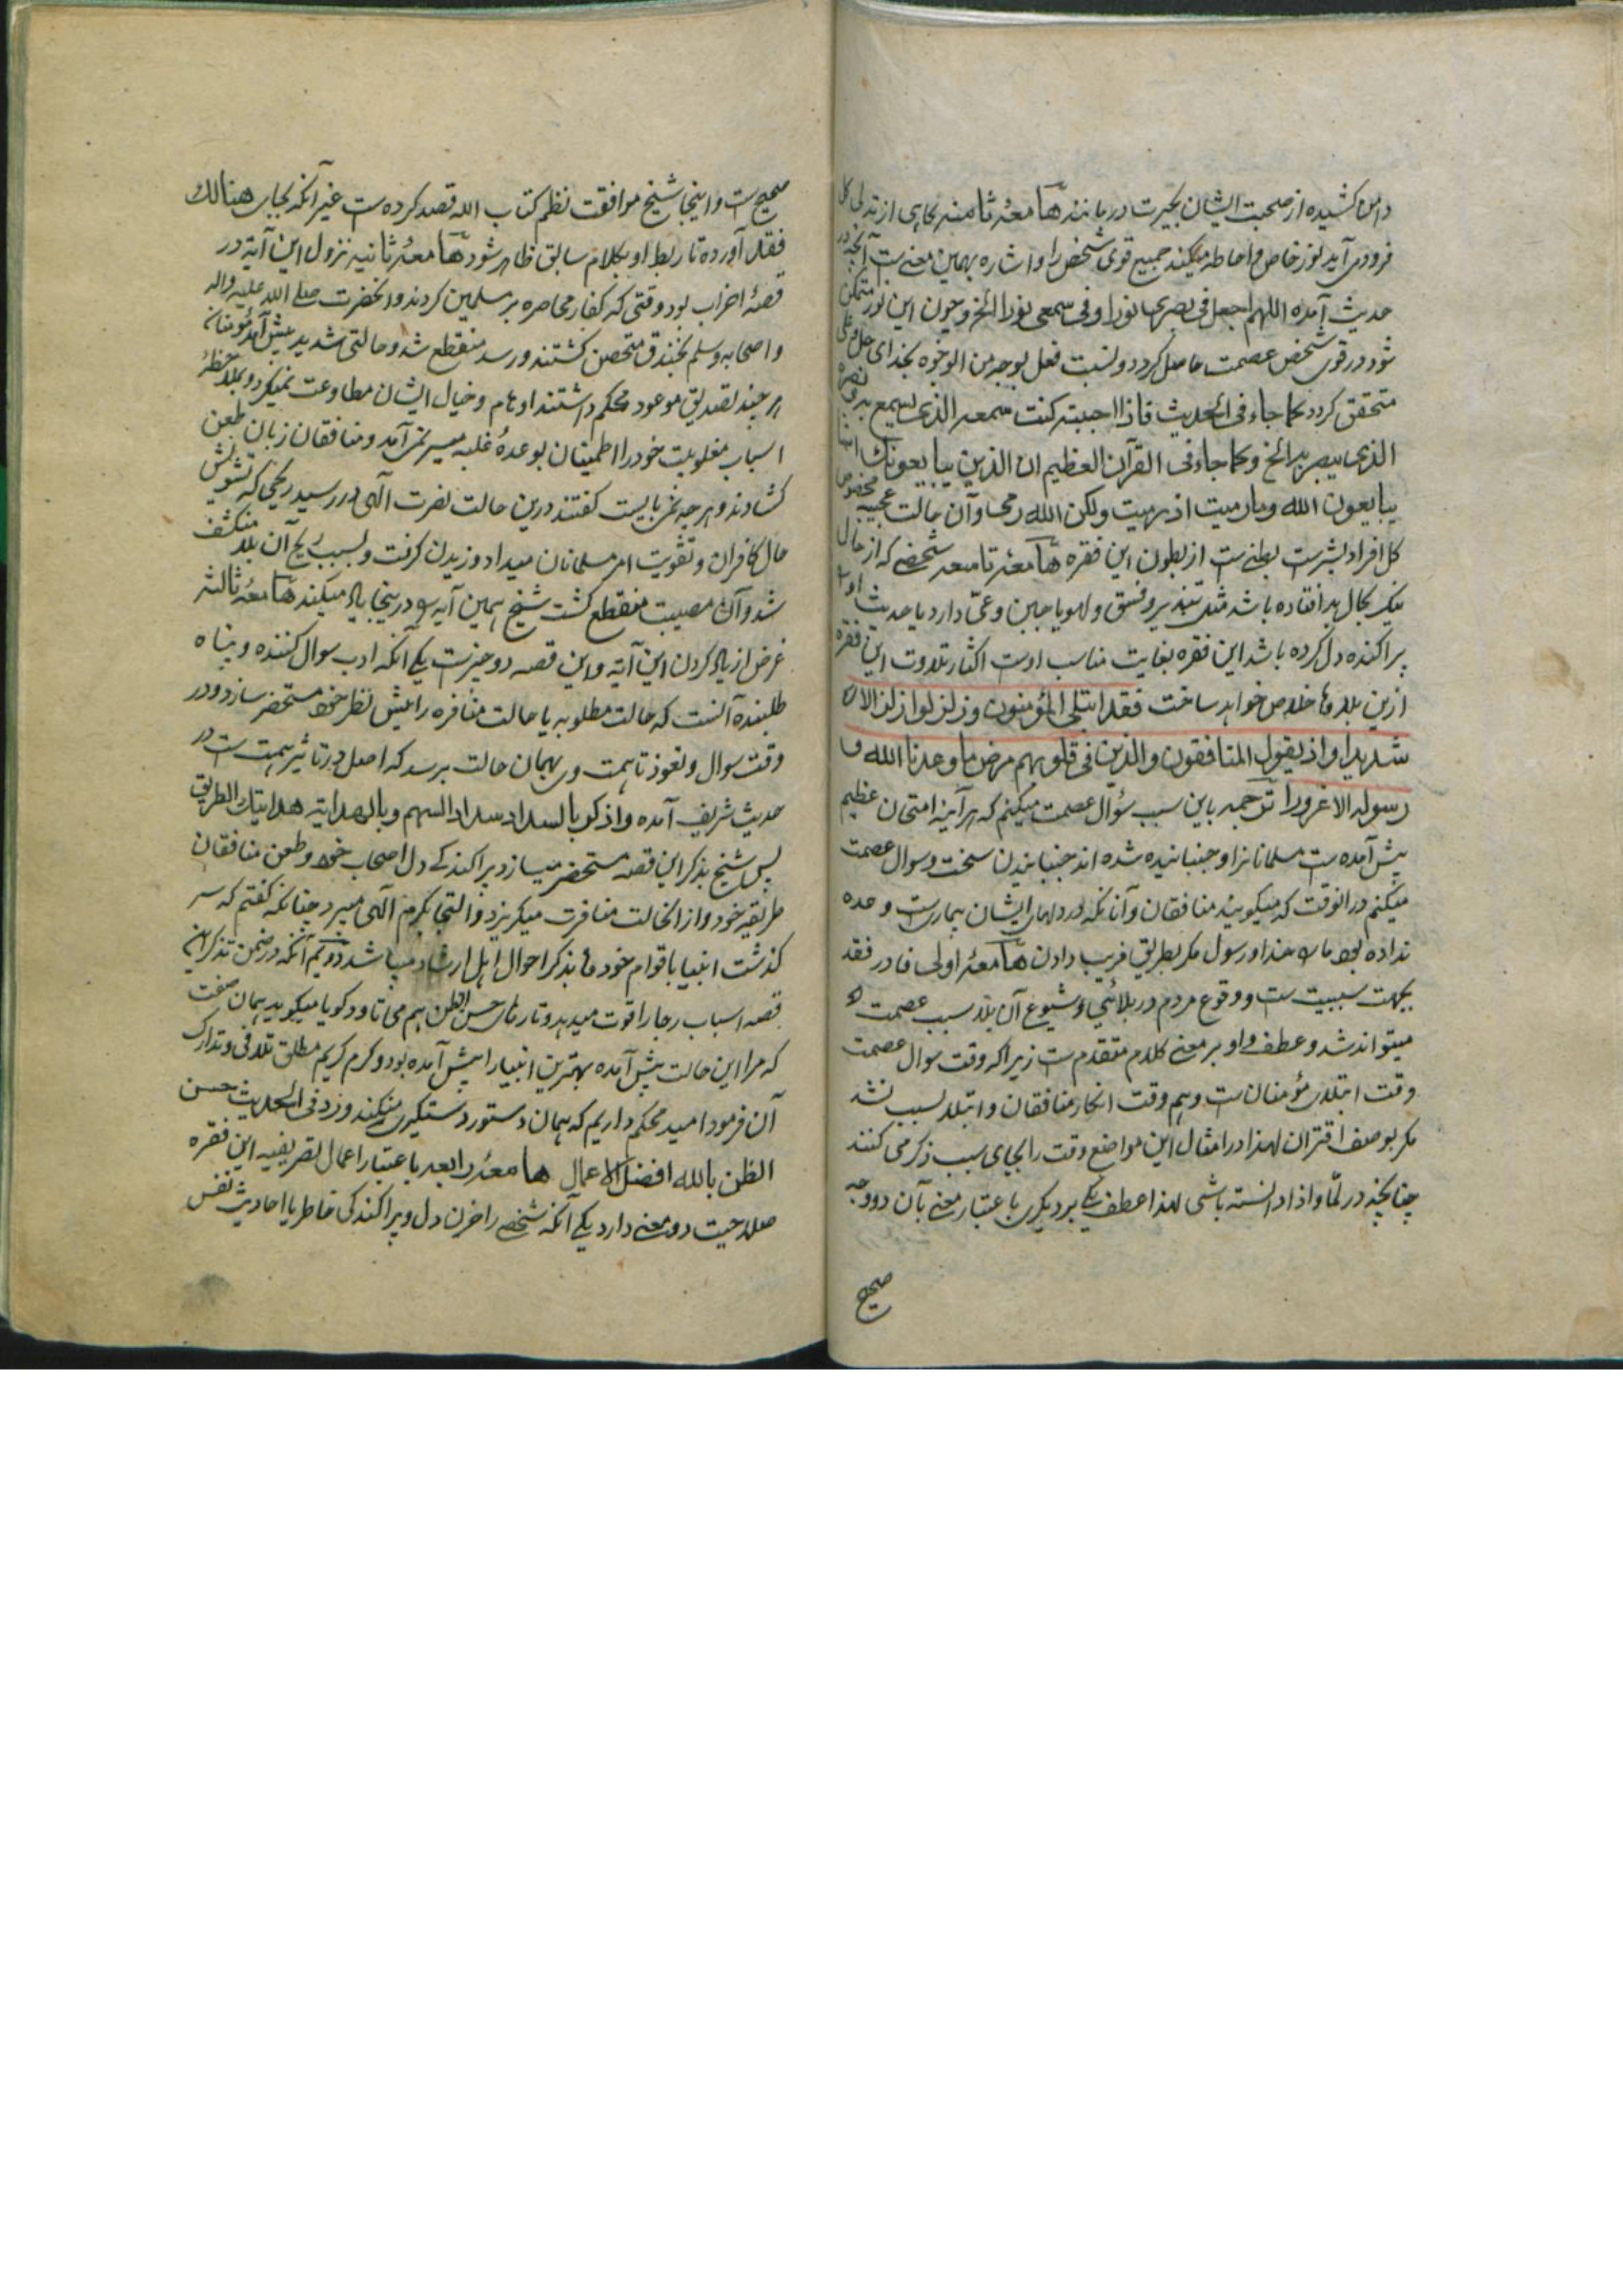 دامن کشیده از صحبت ایشان بحیرت در مانند هامعهٔ ثامنه گاهی از تدلی کل
فرود می آید نور خاص و احاطه میکند جمیع قوی شخص را و اشاره بهمین معنے ست آنچه در
حدیث آمده اللهم اجعل فی بصری نورا و فی سمعی نورا الخ و چون این نور متمکن
شود در قوی شخص عصمت حاصل کردد و نسبت فعل بوجه من الوجوه بخدای جل و علی
متحقق کردد کما جاء فی الحدیث فاذا احببته کنت سمعه الذی یسمع به و بصره
الذی یبصر به الخ و کما جاء فی القرآن العظیم ان الذین یبایعونک انما
یبایعون الله و ما رمیت اذ رمیت ولکن الله رمی و آن حالت عجیبه مخصوص
کل افراد بشرست بطنے ست از بطون این فقره هامعهٔ تاسعه شخصے که از حال
نیک بحال بد افتاده باشد مثل تبذیر و فسق و لهو یا جبن و غمی دارد یا حدیث او را
پراکنده دل کرده باشد این فقره بغایت مناسب اوست اکثار تلاوت این فقره
ازین بلاوها خلاص خواهد ساخت فقد ابتلی المؤمنون و زلزلوا زلزالا
شدیدا و اذ یقول المنافقون والذین فی قلوبهم مرض ما وعدنا الله و
رسوله الا غرورا ترجمه باین سبب سؤال عصمت میکنم که هر آئینه امتحان عظیم
پیش آمده ست مسلمانانرا و جنبانیده شده اند جنبانیدن سخت و سوال عصمت
میکنم در الوقت که میگویند منافقان و آنانکه در دلهای ایشان بیماریست وعده
نداده بود مارا خدا و رسول مگر بطریق فریب دادن هامعهٔ اولی فا در فقد
بجهت سببیت ست و وقوع مردم در بلائی و شیوع آن بلا سبب عصمت
میتواند شد و عطف واو بر معنے کلام متقدم ست زیرا که وقت سوال عصمت
وقت ابتلای مؤمنان ست و هم وقت انکار منافقان و ابتلا سبب نشد
مگر بوصف اقتران لهذا در امثال این مواضع وقت را بجای سبب ذکر می کنند
چنانچه در لمّا و اذا دانسته باشی لهذا عطف یکے بر دیگری باعتبار معنے بآن دو وجه
صحیح
صحیح ست و اینجا شیخ موافقت نظم کتاب الله قصد کرده ست غیر آنکه بجای هنالک
فقد آورده تا ربط او بکلام سابق ظاهر شود هامعهٔ ثانیه نزول این آیه در
قصهٔ احزاب بود وقتی که کفار محاصره بر مسلمین کردند و آنحضرت صلے الله علیه و اله
و اصحابه و سلم بخندق متحصن گشتند و رسد منقطع شد و حالتی شدید پیش آمد مؤمنان
هر چند تصدیق موعود محکم داشتند اوهام و خیال ایشان مطاوعت نمیکرد و بملاحظهٔ
اسباب مغلوبیت خود را اطمینان بوعدهٔ غلبه میسر نمی آمد و منافقان زبان طعن
کشادند و هر چه نمی بایست کفتند درین حالت نصرت الهی در رسید ریحی که تشویش
حال کافران و تقویت امر مسلمانان میداد وزیدن کرفت و بسبب ریح آن بلا منکشف
شد و آن مصیبت منقطع گشت شیخ همین آیه را درینجا یاد میکند هامعهٔ ثالثه
غرض از یاد کردن این آیه و این قصه دو چیزست یکے آنکه ادب سوال کننده و پناه
طلبنده آنست که حالت مطلوبه یا حالت منافره را پیش نظر خود مستحضر سازد و در
وقت سوال و تعوذ تا همت وی بهمان حالت برسد که اصل در تاثیر همت ست در
حدیث شریف آمده و اذکر بالسداد سداد السهم و بالهدایة هدایتک الطریق
پس شیخ بذکر این قصه مستحضر میسازد پراکندکے دل اصحاب خود و طعن منافقان
طریقهٔ خود و از انحالت منافرت میگریزد و التجا بکرم الهی میبرد چنانکه کفتم که سر
کذشت انبیا با قوام خودها بذکر احوال اهل ارشاد میباشد دویم آنکه در ضمن تذکر این
قصه اسباب رجا را قوت میدهد و تارهای حسن الظن بهم می تاود کویا میکوید همان صفت
که مرا این حالت پیش آمده بهترین انبیا را پیش آمده بود و کرم کریم مطلق تلافی و تدارک
آن فرمود امید محکم داریم که همان دستور دستگیری میکند ورد فی الحدیث حسن
الظن بالله افضل الاعمال هامعهٔ رابعه باعتبار اعمال تصریفیه این فقره
صلاحیت دو معنے دارد یکے آنکه شخصے را حزن دل و پراکندکی خاطر یا احادیث نفس